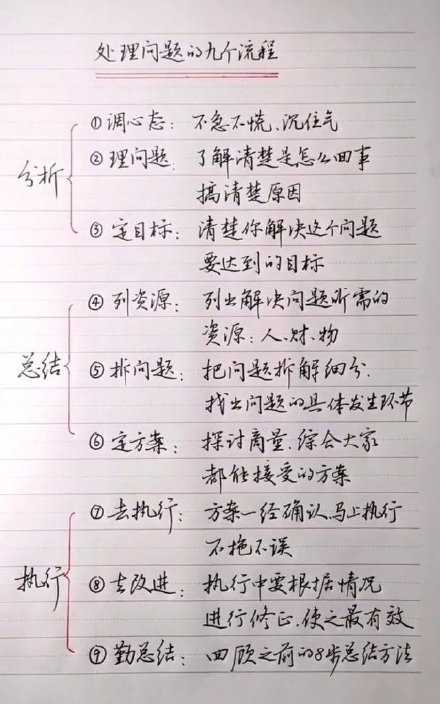 处理问题的九个流程
分析
①调心态：不急不慌、沉住气
②理问题 了解清楚是怎么回事
搞清楚原因
③定目标：清楚你解决这个问题
要达到的目标
总结
④列资源：列出解决问题所需的
资源：人、财、物
⑤拆问题：把问题拆解细分.
找出问题的具体发生环节
⑥定方案：探讨商量.综合大家
都能接受的方案
执行
⑦去执行：方案一经确认、马上执行
不拖不误
⑧去改进：执行中要根据情况
进行修正、使之最有效
⑨勤总结：回顾之前的8步总结方法